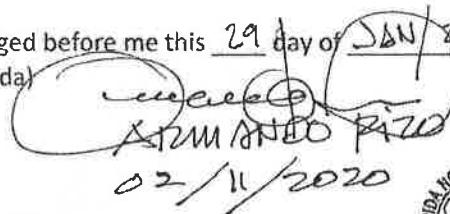 ged before me this 29 day of JAN/
da)
ARMANDO RIZO
02/11/2020
DA NO